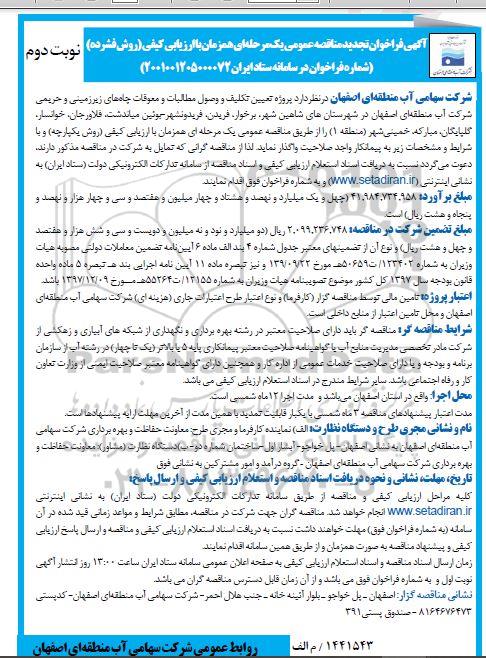 آگهی فراخوان تجدید مناقصه عمومی یک مرحله‌ای همزمان با ارزیابی کیفی (روش فشرده)
(شماره فراخوان در سامانه ستاد ایران ۲۰۰۱۰۰۱۲۰۵۰۰۰۰۷۲)
نوبت دوم
شرکت سهامی آب منطقه‌ای اصفهان درنظردارد پروژه تعیین تکلیف و وصول مطالبات و معوقات چاه‌های زیرزمینی و حریمی
شرکت آب منطقه‌ای اصفهان در شهرستان های شاهین شهر، برخوار، فریدن، فریدونشهر-بوئین میاندشت، فلاورجان، خوانسار،
گلپایگان، مبارکه، خمینی‌شهر (منطقه ۱) را از طریق مناقصه عمومی یک مرحله ای همزمان با ارزیابی کیفی (روش یکپارچه) و با
شرایط و مشخصات زیر به پیمانکار واجد صلاحیت واگذار نماید. لذا از مناقصه گرانی که تمایل به شرکت در مناقصه مذکور دارند،
دعوت می‌گردد نسبت به دریافت اسناد استعلام ارزیابی کیفی و اسناد مناقصه از سامانه تدارکات الکترونیکی دولت (ستاد ایران) به
نشانی اینترنتی (www.setadiran.ir) و به شماره فراخوان فوق اقدام نمایند.
مبلغ برآورد: ۴۱,۹۸۴,۷۳۴,۹۵۸ (چهل و یک میلیارد و نهصد و هشتاد و چهار میلیون و هفتصد و سی و چهار هزار و نهصد و
پنجاه و هشت ریال) است.
مبلغ تضمین شرکت در مناقصه: ۲,۰۹۹,۲۳۶,۷۴۸ ریال (دو میلیارد و نود و نه میلیون و دویست و سی و شش هزار و هفتصد
و چهل و هشت ریال) و نوع آن از تضمینهای معتبر جدول شماره ۴ بند الف ماده ۶ آیین‌نامه تضمین معاملات دولتی مصوبه هیات
وزیران به شماره ۱۲۳۴۰۲/ت۵۰۶۵۹هـ مورخ ۹۴/۰۹/۲۲ و نیز تبصره ماده ۱۱ آیین نامه اجرایی بند هـ تبصره ۵ ماده واحده
قانون بودجه سال ۱۳۹۷ کل کشور موضوع تصویبنامه هیات وزیران به شماره ۱۲۱۵۵/ت۵۵۲۶۴هـ مــورخ ۱۳۹۷/۱۲/۰۹ باشد.
اعتبار پروژه: تامین مالی توسط مناقصه گزار (کارفرما) و نوع اعتبار طرح اعتبارات جاری (هزینه ای) شرکت سهامی آب منطقه‌ای
اصفهان و محل تامین اعتبار از منابع داخلی است.
شرایط مناقصه گر: مناقصه گر باید دارای صلاحیت معتبر در رشته بهره برداری و نگهداری از شبکه های آبیاری و زهکشی از
شرکت مادر تخصصی مدیریت منابع آب یا گواهینامه صلاحیت معتبر پیمانکاری پایه ۵ یا بالاتر (یک تا چهار) در رشته آب از سازمان
برنامه و بودجه و یا دارای صلاحیت خدمات عمومی از اداره کار و همچنین دارای گواهینامه معتبر صلاحیت ایمنی از وزارت تعاون
کار و رفاه اجتماعی باشد. سایر شرایط مندرج در اسناد استعلام ارزیابی کیفی می باشد.
محل اجرا: واقع در استان اصفهان می‌باشد و مدت اجرا ۱۲ماه شمسی است.
مدت اعتبار پیشنهادهای مناقصه ۳ ماه شمسی با یکبار قابلیت تمدید با همین مدت از آخرین مهلت ارایه پیشنهادها است.
نام و نشانی مجری طرح و دستگاه نظارت: الف) نماینده کارفرما و مجری طرح: معاونت حفاظت و بهره برداری شرکت سهامی
آب منطقه‌ای اصفهان به نشانی اصفهان- پل خواجو- آبشار اول-ساختمان شماره دو- ب)دستگاه نظارت (مشاور): معاونت حفاظت و
بهره برداری شرکت سهامی آب منطقه‌ای اصفهان -گروه درآمد و امور مشترکین به نشانی فوق
تاریخ، مهلت، نشانی و نحوه دریافت اسناد مناقصه و استعلام ارزیابی کیفی و ارسال پاسخ:
کلیه مراحل ارزیابی کیفی و مناقصه از طریق سامانه تدارکات الکترونیکی دولت (ستاد ایران) به نشانی اینترنتی
www.setadiran.ir انجام خواهد شد. مناقصه گران جهت شرکت در مناقصه، مطابق شرایط و مواعد زمانی قید شده در آن
سامانه (به شماره فراخوان فوق) مهلت خواهند داشت نسبت به دریافت اسناد استعلام ارزیابی کیفی و مناقصه و ارسال پاسخ ارزیابی
کیفی و پیشنهاد مناقصه به صورت همزمان و از طریق همین سامانه اقدام نمایند.
زمان ارسال اسناد مناقصه و اسناد ارزیابی کیفی به صفحه اعلان عمومی سامانه ستاد ایران ساعت ۱۳:۰۰ روز انتشار آگهی
نوبت اول و به شماره فراخوان فوق می باشد و از آن زمان قابل دسترس مناقصه گران می باشد.
نشانی مناقصه گزار: اصفهان ـ پل خواجو ـ بلوار آئینه خانه ـ جنب هلال احمر- شرکت سهامی آب منطقه‌ای اصفهان- کدپستی
۸۱۶۴۶۷۶۴۷۳ - صندوق پستی ۳۹۱
۱۴۴۱۵۴۳ / م الف
روابط عمومی شرکت سهامی آب منطقه‌ای اصفهان